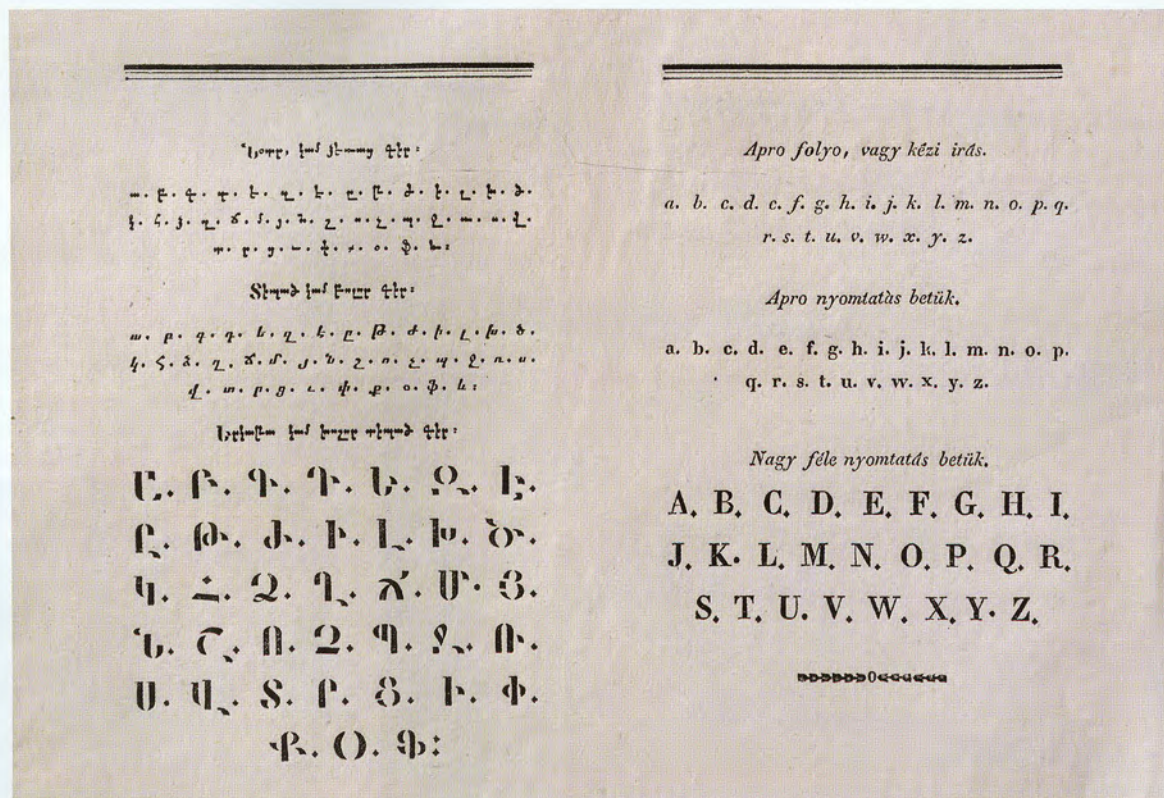 Նօտր, կամ գէր։
ա. բ. գ. դ. ե. զ. է. ը. թ. ժ. ի. լ. խ. ծ.
կ. հ. ձ. ղ. ճ. մ. յ. ն. շ. ո. չ. պ. ջ. ռ. ս. վ.
տ. ր. ց. ւ. փ. ք. օ. ֆ. և։
Տէպած կամ գէր։
ա. բ. գ. դ. ե. զ. է. ը. թ. ժ. ի. լ. խ. ծ.
կ. հ. ձ. ղ. ճ. մ. յ. ն. շ. ո. չ. պ. ջ. ռ. ս.
վ. տ. ր. ց. ւ. փ. ք. օ. ֆ. և։
կամ տէպած գէր։
Ա. Բ. Գ. Դ. Ե. Զ. Է.
Ը. Թ. Ժ. Ի. Լ. Խ. Ծ.
Կ. Հ. Ձ. Ղ. Ճ. Մ. Յ.
Ն. Շ. Ո. Չ. Պ. Ջ. Ռ.
Ս. Վ. Տ. Ր. Ց. Ւ. Փ.
Ք. Օ. Ֆ։
Apro folyo, vagy kézi irás.
a. b. c. d. e. f. g. h. i. j. k. l. m. n. o. p. q.
r. s. t. u. v. w. x. y. z.
Apro nyomtatàs betük.
a. b. c. d. e. f. g. h. i. j. k. l. m. n. o. p.
q. r. s. t. u. v. w. x. y. z.
Nagy féle nyomtatás betük.
A. B. C. D. E. F. G. H. I.
J. K. L. M. N. O. P. Q. R.
S. T. U. V. W. X. Y. Z.